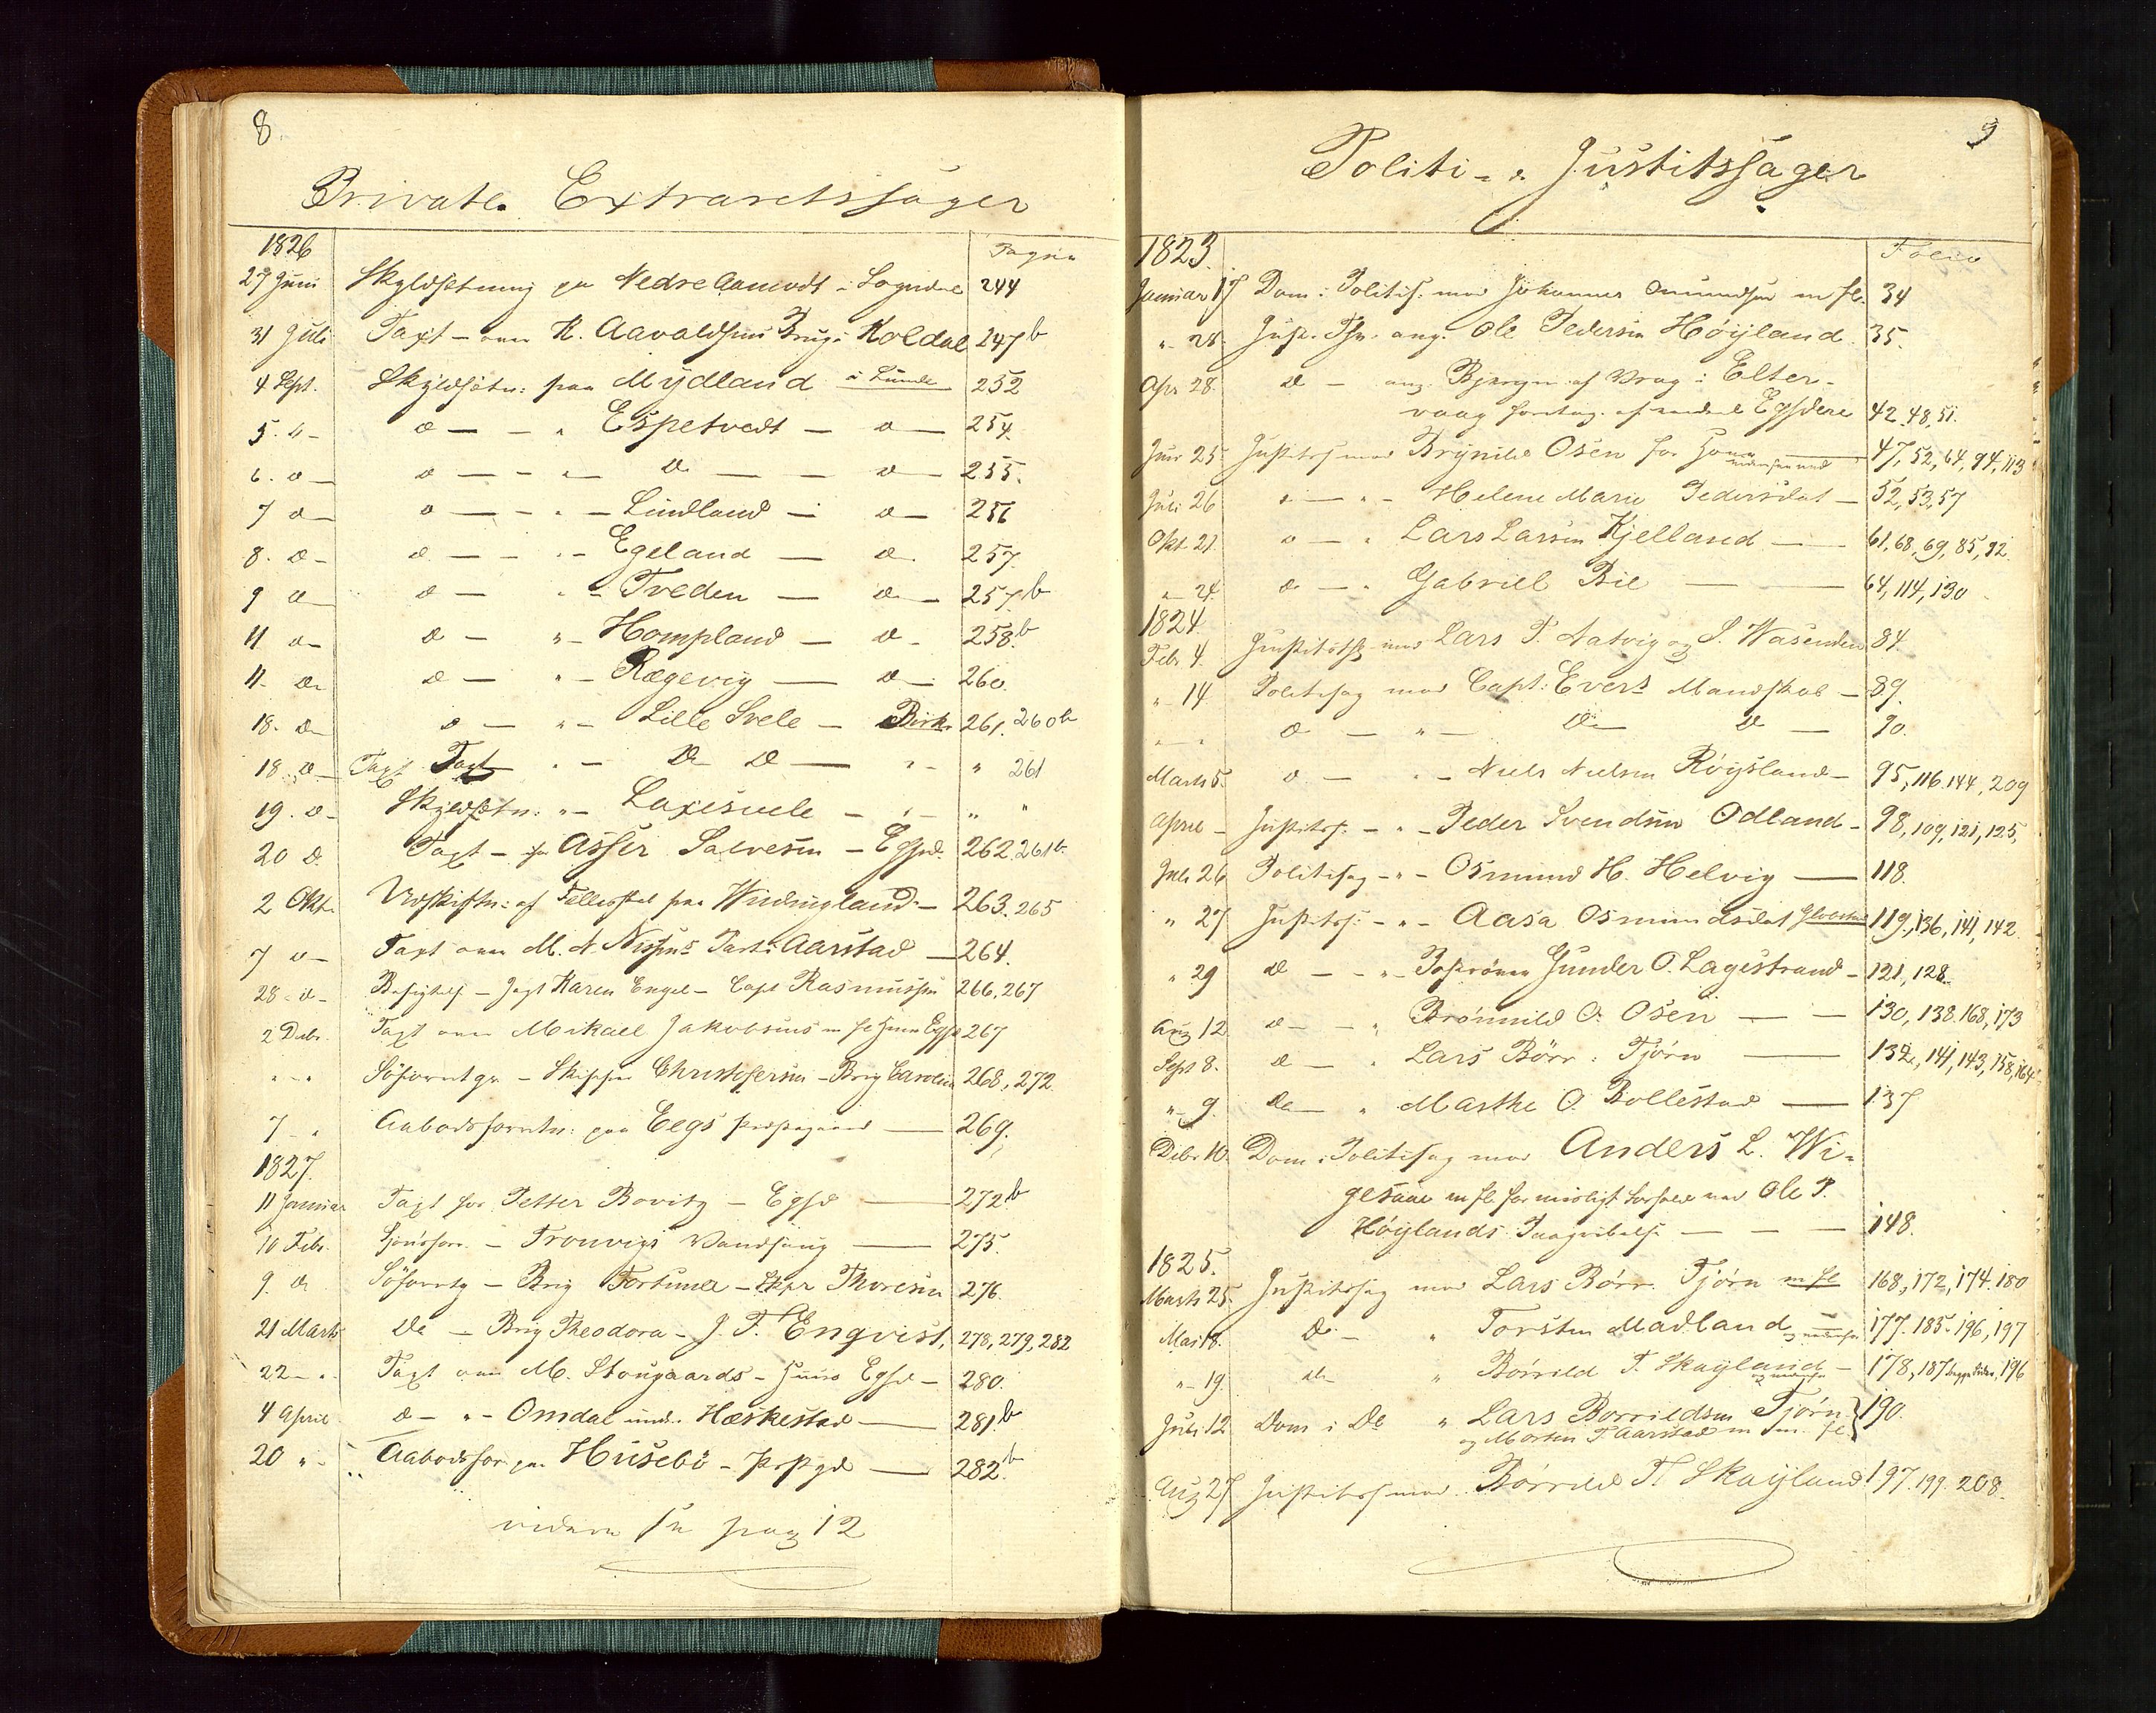 8
Private Extraretssager
1826
Pagina
27 Juni Skyldsetning pa Nedre Aamodt i Sogndal 244
31 Juli Taxt - over K. Aavaldsens Brug i Koldal 247b
4 Sept. Skyldsætn: paa Mydland i Lunde 252
5. d - d - - " Espetvedt - d - 254.
6. d - d - - " - D - - d - 255.
7 d - d - - " - Lindland - d - 256
8. d - d - - " - Egeland - d. 257.
9 d d - " - Tveden - d - 257.b
11 d - d - " - Hompland - d - 258.b
11. d d - " - Rægevig - d - 260.
18. d d - " - Lille Svele - Birkr. 261. 260b
18. d - Taxt Taxt " - D D - " - " 261
19. d - Skyldsætn: " - Laxesvele - " - " "
20 d. Taxt - for Asser Salvesen - Egsd. 262. 261b.
2 Oktr. Udskiftn: af Fellesskal paa Windingland - 263. 265
7 d - Taxt over M. A. Nissens Part i Aarstad - 264.
28 d - Besigtels - Jagt Karen Engel - Capt Rasmussen 266, 267
2 Debr. Taxt over Mikael Jakobsens m fl Huus Egsd 267
" - " Søforretgn - Skipper Christofersen - Brig Carolina 268, 272.
7 - " Aabodsforretn: paa Eegs Præstegaard - 269.
1827.
11 Januar Taxt for Petter Bovitz - Egsd - 272b
10 Febr. Sjøes forr. - Trouvigs Vandsaug - 275.
9. d Søforretg - Brig Fortuna - Skpr Thoresen 276.
21 Marts De - Brig Theodora - J. F. Engvist, 278, 279, 282
22 - " Taxt over M. Stougaards - Huus Egsd - 280.
4 April d - " - Omdal und: Hæskestad - 281.b
20 " - Aabodsfor. paa Husebö - Præstgd - 282.b
videre se pag 12
9
Politi- & Justitssager
1823.
Folio
Januar 17 Dom i Politis. mod Johannes Omundsen m fl. 34
" 28. Just. Thv. ang. Ole Pedersen Höyland. 35.
Apr 28. D - ang. Bjergn. af Vrag i Elter-
vaag foretag. af endeel Egsdere 42. 48, 51.
Juni 25. Justitss mod Brynild Osen for 47, 52, 64, 94, 113
Juli 26 " - " - Helene Marie Pedersdat - 52, 53, 57
Okt. 21. d - " Lars Larsen Kjelland - 61, 68, 69, 85, 92.
" 24. d - " Gabriel Bie - 64, 114, 130
1824
Febr 4. Justitss mod Lars T. Aatvig og S. Wasenden 84.
" 14 Politisag mod Capt: Everts Mandskab - 89.
" " d - " - D D - 90.
Marts 5. d. - " - Niels Nielsen Röysland - 95, 116. 144, 209
April - Justitss: - " - Peder Svendsen Odland - 98, 109, 121, 125,
Juli 26 Politisag - " - Osmund H. Helvig - 118.
" 27 Justitss: - " - Aasa Osmundsdat 119, 136, 141, 142.
" 29 d - - " - Gunder O. Lagestrand - 121, 128.
Aug 12 d - - " Brönnild O. Osen - - 130, 138. 168, 173
Sept 8. d - " Lars Börr: Tjörn - 132, 141, 143, 158, 164
" 9 de - " Marthe O. Bollestad - 137
Debr 10. Dom i Politisag mod Anders L. Wi-
gesaae m fl for uroligt forhold ved Ole P.
Höylands Paagribelse - - - 148.
1825.
Marts 25. Justitssag mod Lars Börr. Tjörn m fl 168, 172, 174. 180
Mai 18. De - " Torsten Madland 177. 185. 196, 197
" - 19. de - " Börrild T. Skayland - 178, 187 begge sider, 196
Juli 12 Dom i De " Lars Borrildsen Tjörn 190.
og Morten T Aarstad m fl.
Aug 27 Justitss mod Börrild T. Skayland 197. 199. 208.